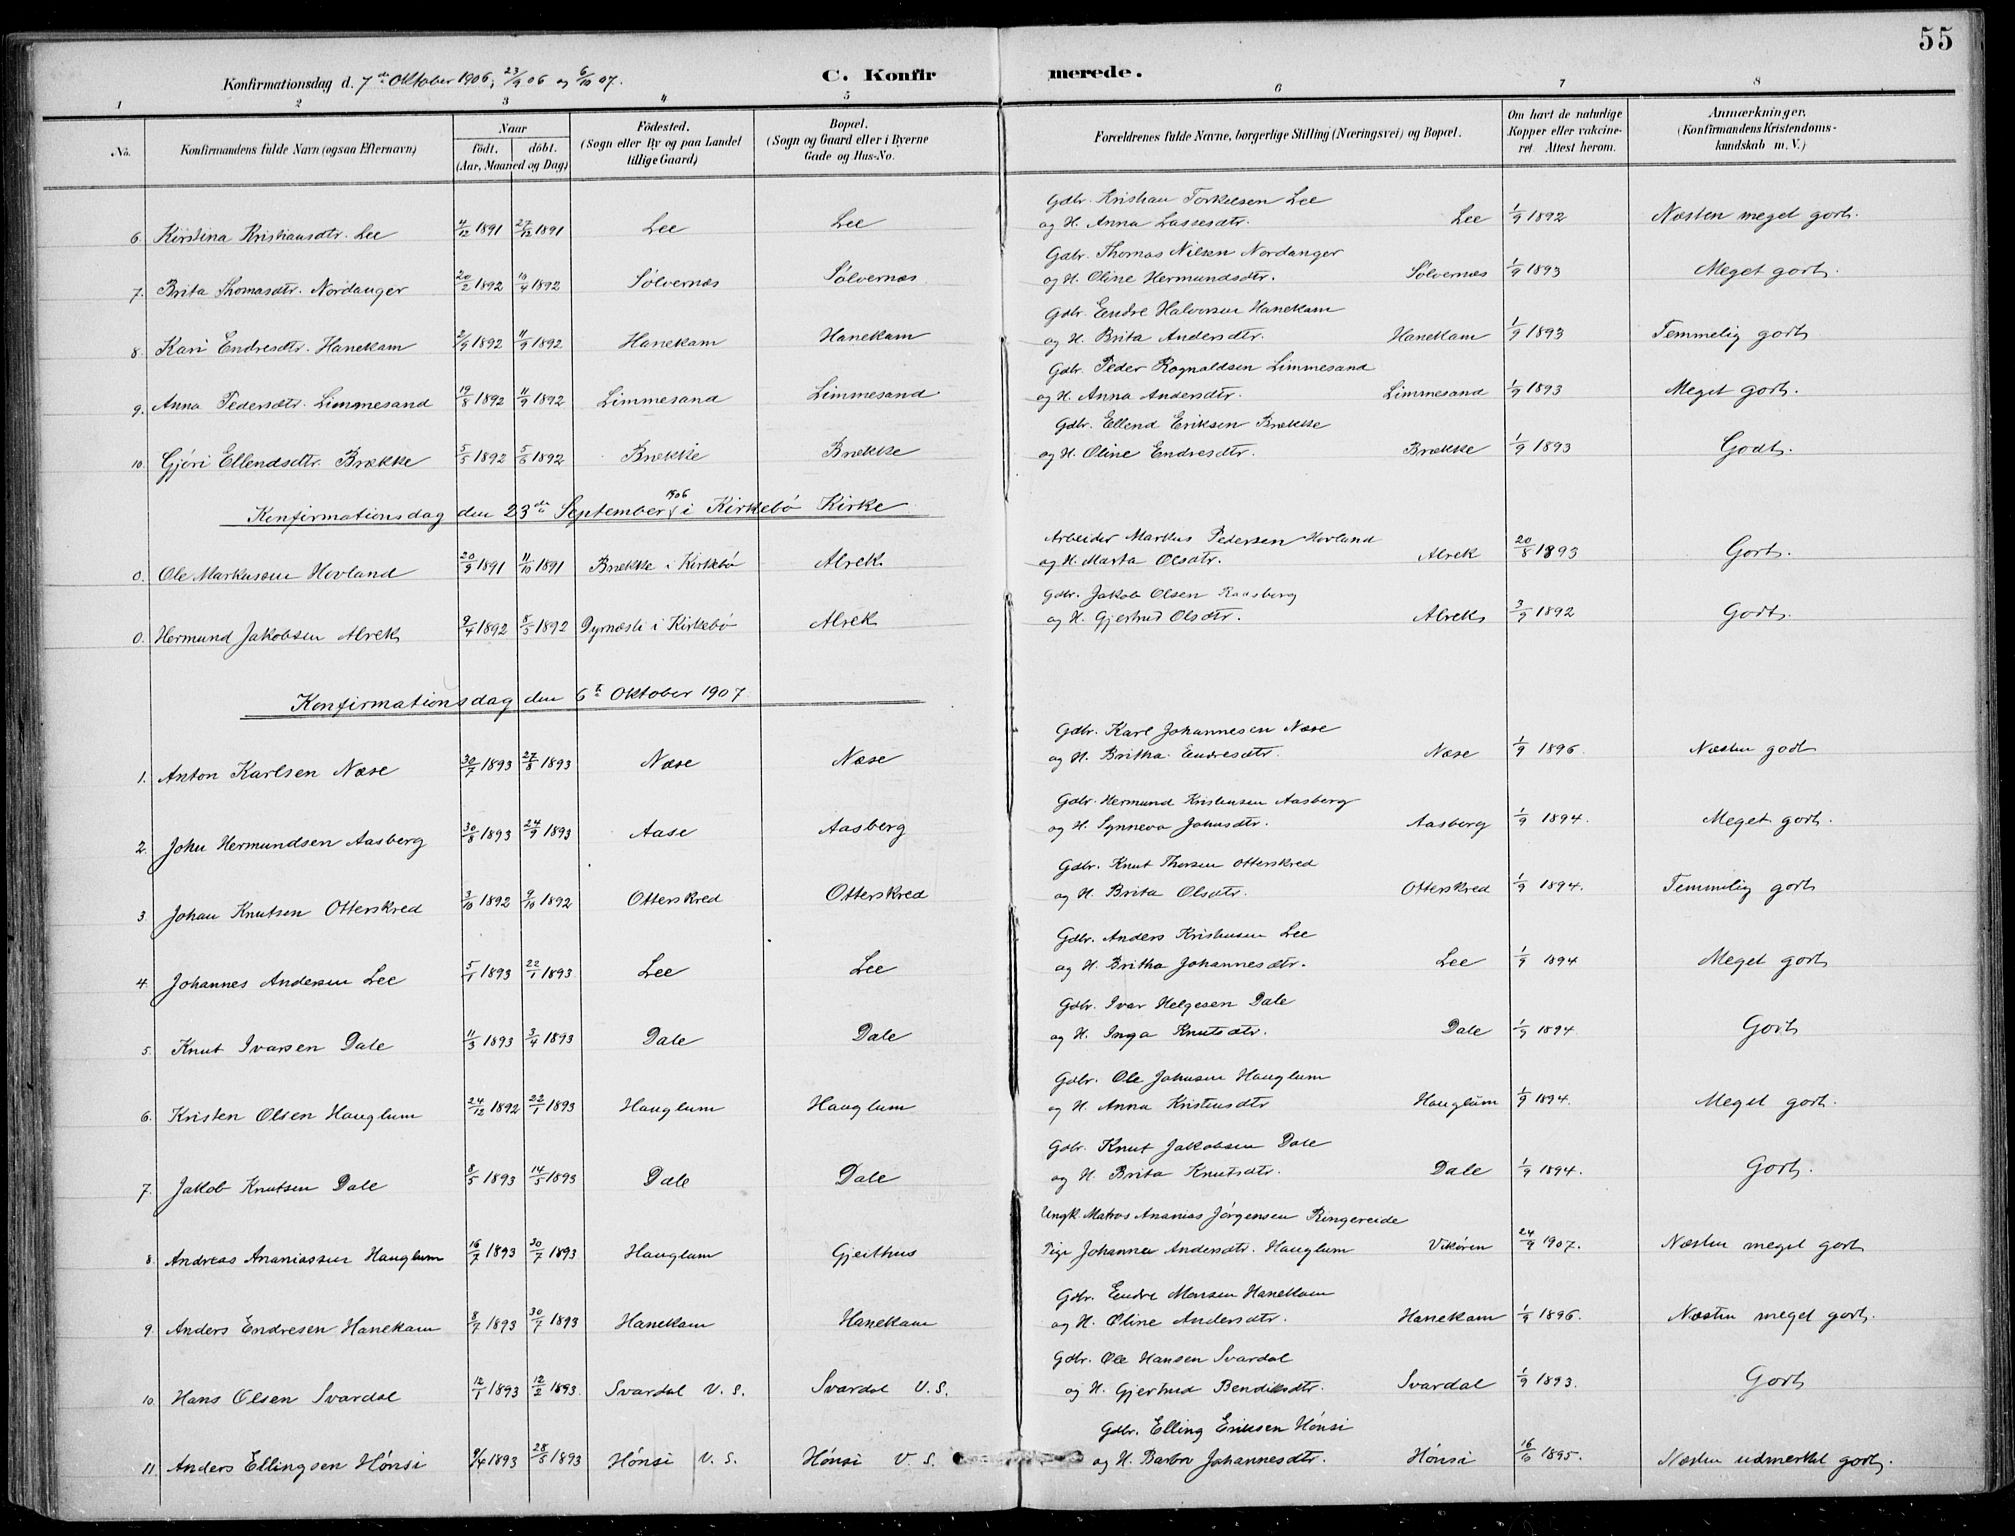 55
Konfirmationsdag d. 7de Oktober 1906, 23/9 06 og 6/10 07. C. Konfir merede.
1 2 3 4 5 6 7 8
No. Konfirmandens fulde Navn (ogsaa Efternavn) Naar født. døbt. (Aar, Maaned og Dag) Fødested. (Sogn eller By og paa Landet tillige Gaard) Bopæl. (Sogn og Gaard eller i Byerne Gade og Hus-No. Forældrenes fulde Navne, borgerlige Stilling (Næringsvei) og Bopæl. Om havt de naturlige Kopper eller vakcineret. Attest herom. Anmærkninger. (Konfirmandens Kristendomskundskab m. V.)
Gdbr. Kristian Torkelsen Lee
6. Kirstina Kristiansdtr. Lee 4/12 1891 27/12 1891 Lee Lee og H. Anna Lassesdtr. Lee 1/9 1892 Næsten meget godt.
Gdbr. Thomas Nilsen Nordanger
7. Brita Thomasdtr. Nordanger 20/2 1892 10/4 1892 Sølvernæs Sølvernæs og H. Oline Hermundsdtr. Sølvernæs 1/9 1893 Meget godt.
Gdbr. Endre Halvorsen Hanekam
8. Kari Endresdtr. Hanekam 2/9 1892 11/9 1892 Hanekam Hanekam og H. Brita Andersdtr. Hanekam 1/9 1893 Temmelig godt
Gdbr. Peder Rognaldsen Limmesand
9. Anna Pedersdtr. Limmesand 19/8 1892 11/9 1892 Limmesand Limmesand og H. Anna Andersdtr. Limmesand 1/9 1893 Meget godt.
Gdbr. Ellend Eriksen Brække
10. Gjøri Ellendsdtr. Brække 5/5 1892 5/6 1892 Brække Brække og H. Oline Endresdtr. Brække 1/9 1893 Godt.
Konfirmationsdag den 23de September 1906 i Kirkebø Kirke
Arbeider Markus Pedersen Hovland
0. Ole Markusen Hovland 20/9 1891 11/10 1891 Brække i Kirkebø Alrek og H. Marta Olsdtr. Alrek 20/8 1893 Godt.
Gdbr. Jakob Olsen Raasberg
0. Hermund Jakobsen Alrek 9/4 1892 8/5 1892 Dyrnæsli i Kirkebø Alrek og H. Gjertrud Olsdtr. Alrek 3/9 1892 Godt.
Konfirmationsdag den 6te Oktober 1907
Gdbr. Karl Johannesen Næse
1. Anton Karlsen Næse 30/7 1893 27/8 1893 Næse Næse og H. Britha Endresdtr. Næse 1/9 1896. Næsten godt
Gdbr. Hermund Kristensen Aasberg
2. John Hermundsen Aasberg 30/8 1893 24/9 1893 Aase Aasberg og H. Synneva Johnsdtr. Aasberg 1/9 1894. Meget godt.
Gdbr. Knut Thorsen Otterskred
3. Johan Knutsen Otterskred 3/10 1892 9/10 1892 Otterskred Otterskred og H. Brita Olsdtr. Otterskred 1/9 1894. Temmelig godt
Gdbr. Anders Kristensen Lee
4. Johannes Andersen Lee 5/1 1893 22/1 1893 Lee Lee og H. Britha Johannesdtr. Lee 1/9 1894 Meget godt
Gdbr. Ivar Helgesen Dale
5. Knut Ivarsen Dale 11/3 1893 3/4 1893 Dale Dale og H. Inga Knutsdtr. Dale 1/9 1894. Godt
Gdbr. Ole Johnsen Hauglum
6. Kristen Olsen Hauglum 24/12 1892 22/1 1893 Hauglum Hauglum og H. Anna Kristensdtr Hauglum 1/9 1894. Meget godt.
Gdbr. Knut Jakobsen Dale
7. Jakob Knutsen Dale 8/5 1893 14/5 1893 Dale Dale og H. Brita Knutsdtr. Dale 1/9 1894. Godt.
Ungk. Matros Ananias Jørgensen Ringereide
8. Andreas Ananiassen Hauglum 16/7 1893 30/7 1893 Hauglum Gjeithus Pige Johanna Andersdtr. Hauglum Vikøren 24/9 1907. Næsten meget godt
Gdbr. Endre Monsen Hanekam
9. Anders Endresen Hanekam 8/7 1893 30/7 1893 Hanekam Hanekam og H. Oline Andersdtr. Hanekam 1/9 1896. Næsten meget godt.
Gdbr. Ole Hansen Svardal
10. Hans Olsen Svardal 12/1 1893 12/2 1893. Svardal V. S. Svardal V. S. og H. Gjertrud Bendiksdtr. Svardal 1/9 1893. Godt
Gdbr. Elling Eriksen Hønsi
11. Anders Ellingsen Hønsi 9/4 1893 28/5 1893 Hønsi V. S. Hønsi V. S. og H. Barbro Johannesdtr. Hønsi 16/10 1895. Næsten udmerket godt.